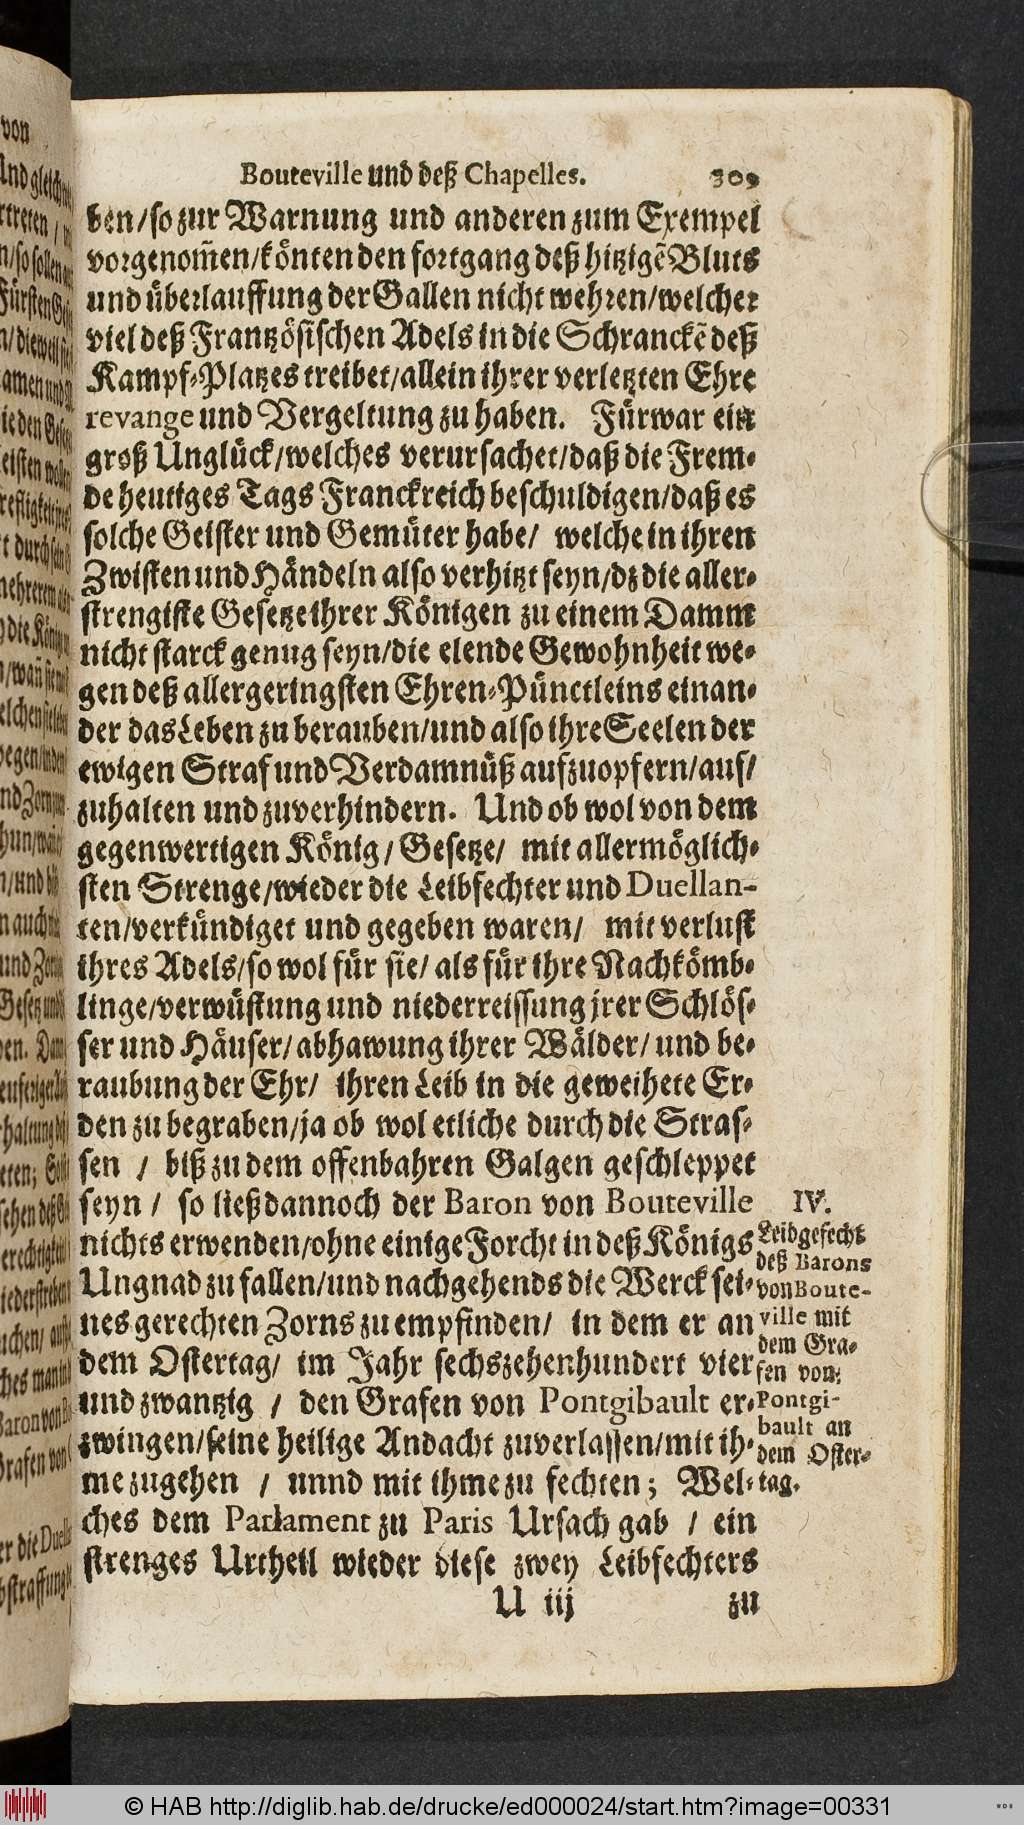 Bouteville und deß Chapelles. 309
ben/so zur Warnung und anderen zum Exempel
vorgenom̃en/könten den fortgang deß hitzigẽ Bluts
und überlauffung der Gallen nicht wehren/welcher
viel deß Frantzösischen Adels in die Schranckẽ deß
Kampf-Platzes treibet/allein ihrer verletzten Ehre
revange und Vergeltung zu haben. Fürwar ein
groß Unglück/welches verursachet/daß die Frem-
de heutiges Tags Franckreich beschuldigen/daß es
solche Geister und Gemüter habe/ welche in ihren
Zwisten und Händeln also verhitzt seyn/dz die aller-
strengiste Gesetze ihrer Königen zu einem Damm
nicht starck genug seyn/die elende Gewohnheit we-
gen deß allergeringsten Ehren-Pünctleins einan-
der das Leben zu berauben/und also ihre Seelen der
ewigen Straf und Verdamnüß aufzuopfern/auf/
zuhalten und zuverhindern. Und ob wol von dem
gegenwertigen König/ Gesetze/ mit allermöglich-
sten Strenge/wieder die Leibfechter und Duellan-
ten/verkündiget und gegeben waren/ mit verlust
ihres Adels/so wol für sie/ als für ihre Nachkömb-
linge/verwüstung und niederreissung jrer Schlös-
ser und Häuser/abhawung ihrer Wälder/ und be-
raubung der Ehr/ ihren Leib in die geweihete Er-
den zu begraben/ja ob wol etliche durch die Stras-
sen / biß zu dem offenbahren Galgen geschleppet
seyn / so ließ dannoch der Baron von Bouteville
nichts erwenden/ohne einige Forcht in deß Königs
Ungnad zu fallen/und nachgehends die Werck sei-
nes gerechten Zorns zu empfinden/ in dem er an
dem Ostertag/ im Jahr sechszehenhundert vier
und zwantzig / den Grafen von Pontgibault er-
zwingen/seine heilige Andacht zuverlassen/mit ih-
me zugehen / unnd mit ihme zu fechten; Wel-
ches dem Parlament zu Paris Ursach gab / ein
strenges Urtheil wieder diese zwey Leibfechters
U iij zu
IV.
Leibgefecht
deß Barons
von Boute-
ville mit
dem Gra-
fen von
Pontgi-
bault an
dem Oster-
tag.
© HAB http://diglib.hab.de/drucke/ed000024/start.htm?image=00331